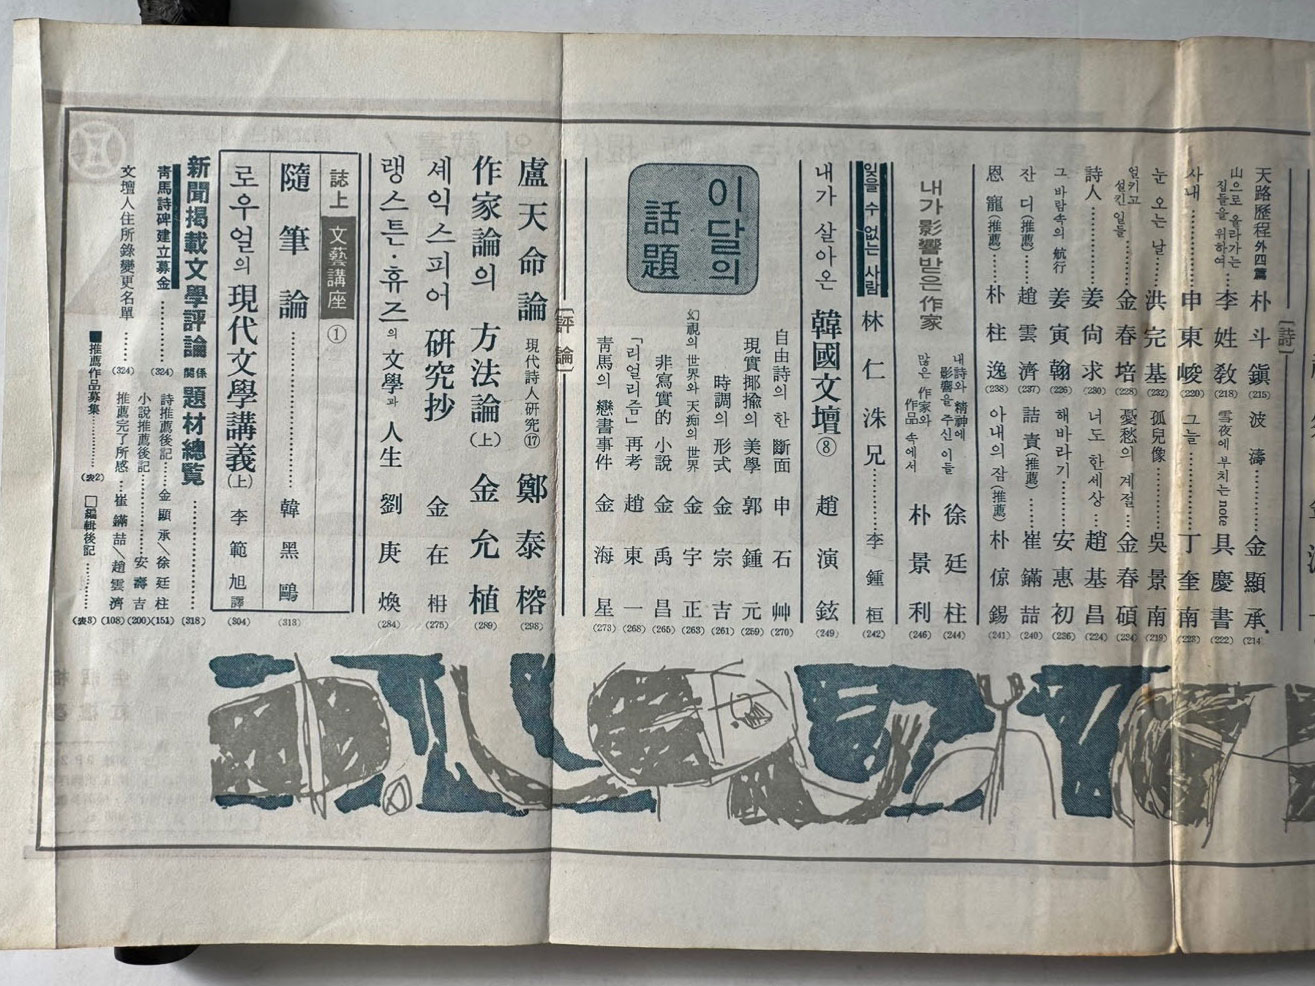 [詩]
天路歷程 外四篇 朴斗鎭 (215)
波濤……金顯承 (214)
山으로 올라가는 집들을 위하여… 李姓敎 (218)
雪夜에 부치는 note 具慶書 (222)
사내……申東峻 (220)
그늘……丁奎南 (223)
눈 오는 날……洪完基 (232)
孤兒像……吳景南 (219)
얽키고 설킨 일들……金春培 (228)
憂愁의 계절…金春碩 (234)
詩人……姜尙求 (230)
너도 한세상…趙基昌 (224)
그 바람속의 航行 姜寅翰 (226)
해바라기……安惠初 (236)
잔디(推薦)……趙雲濟 (237)
詰責(推薦)……崔鏋喆 (240)
恩寵(推薦)……朴柱逸 (238)
아내의 잠(推薦) 朴倞錫 (241)
내가 影響받은 作家
내 詩와 精神에 影響을 주신 이들 徐廷柱 (244)
많은 作家와 作品 속에서 朴景利 (246)
잊을 수 없는 사람
林仁洙兄……李鍾桓 (242)
내가 살아온 韓國文壇⑧ 趙演鉉 (249)
이달의 話題
自由詩의 한 斷面 申石艸 (270)
現實揶揄의 美學 郭鍾元 (259)
時調의 形式 金宗吉 (261)
幻視의 世界와 天痴의 世界 金宇正 (263)
非寫實的 小說 金禹昌 (265)
「리얼리즘」再考 趙東一 (268)
靑馬의 戀書事件 金海星 (273)
[評論]
盧天命論 現代詩人硏究⑰ 鄭泰榕 (298)
作家論의 方法論(上) 金允植 (289)
셰익스피어 硏究抄 金在枏 (275)
랭스튼·휴즈의 文學과 人生 劉庚煥 (284)
誌上 文藝講座 ①
隨筆論……韓黑鷗 (313)
로우얼의 現代文學講義(上) 李範旭 譯 (304)
新聞揭載文學評論 關係 題材總覽…… (318)
靑馬詩碑建立募金…… (324)
詩推薦後記……金顯承／徐廷柱 (151)
小說推薦後記……安壽吉 (200)
文壇人住所錄變更名單…… (324)
推薦完了所感…崔鏋喆／趙雲濟 (108)
■推薦作品募集…… (表2)
□編輯後記…… (表3)